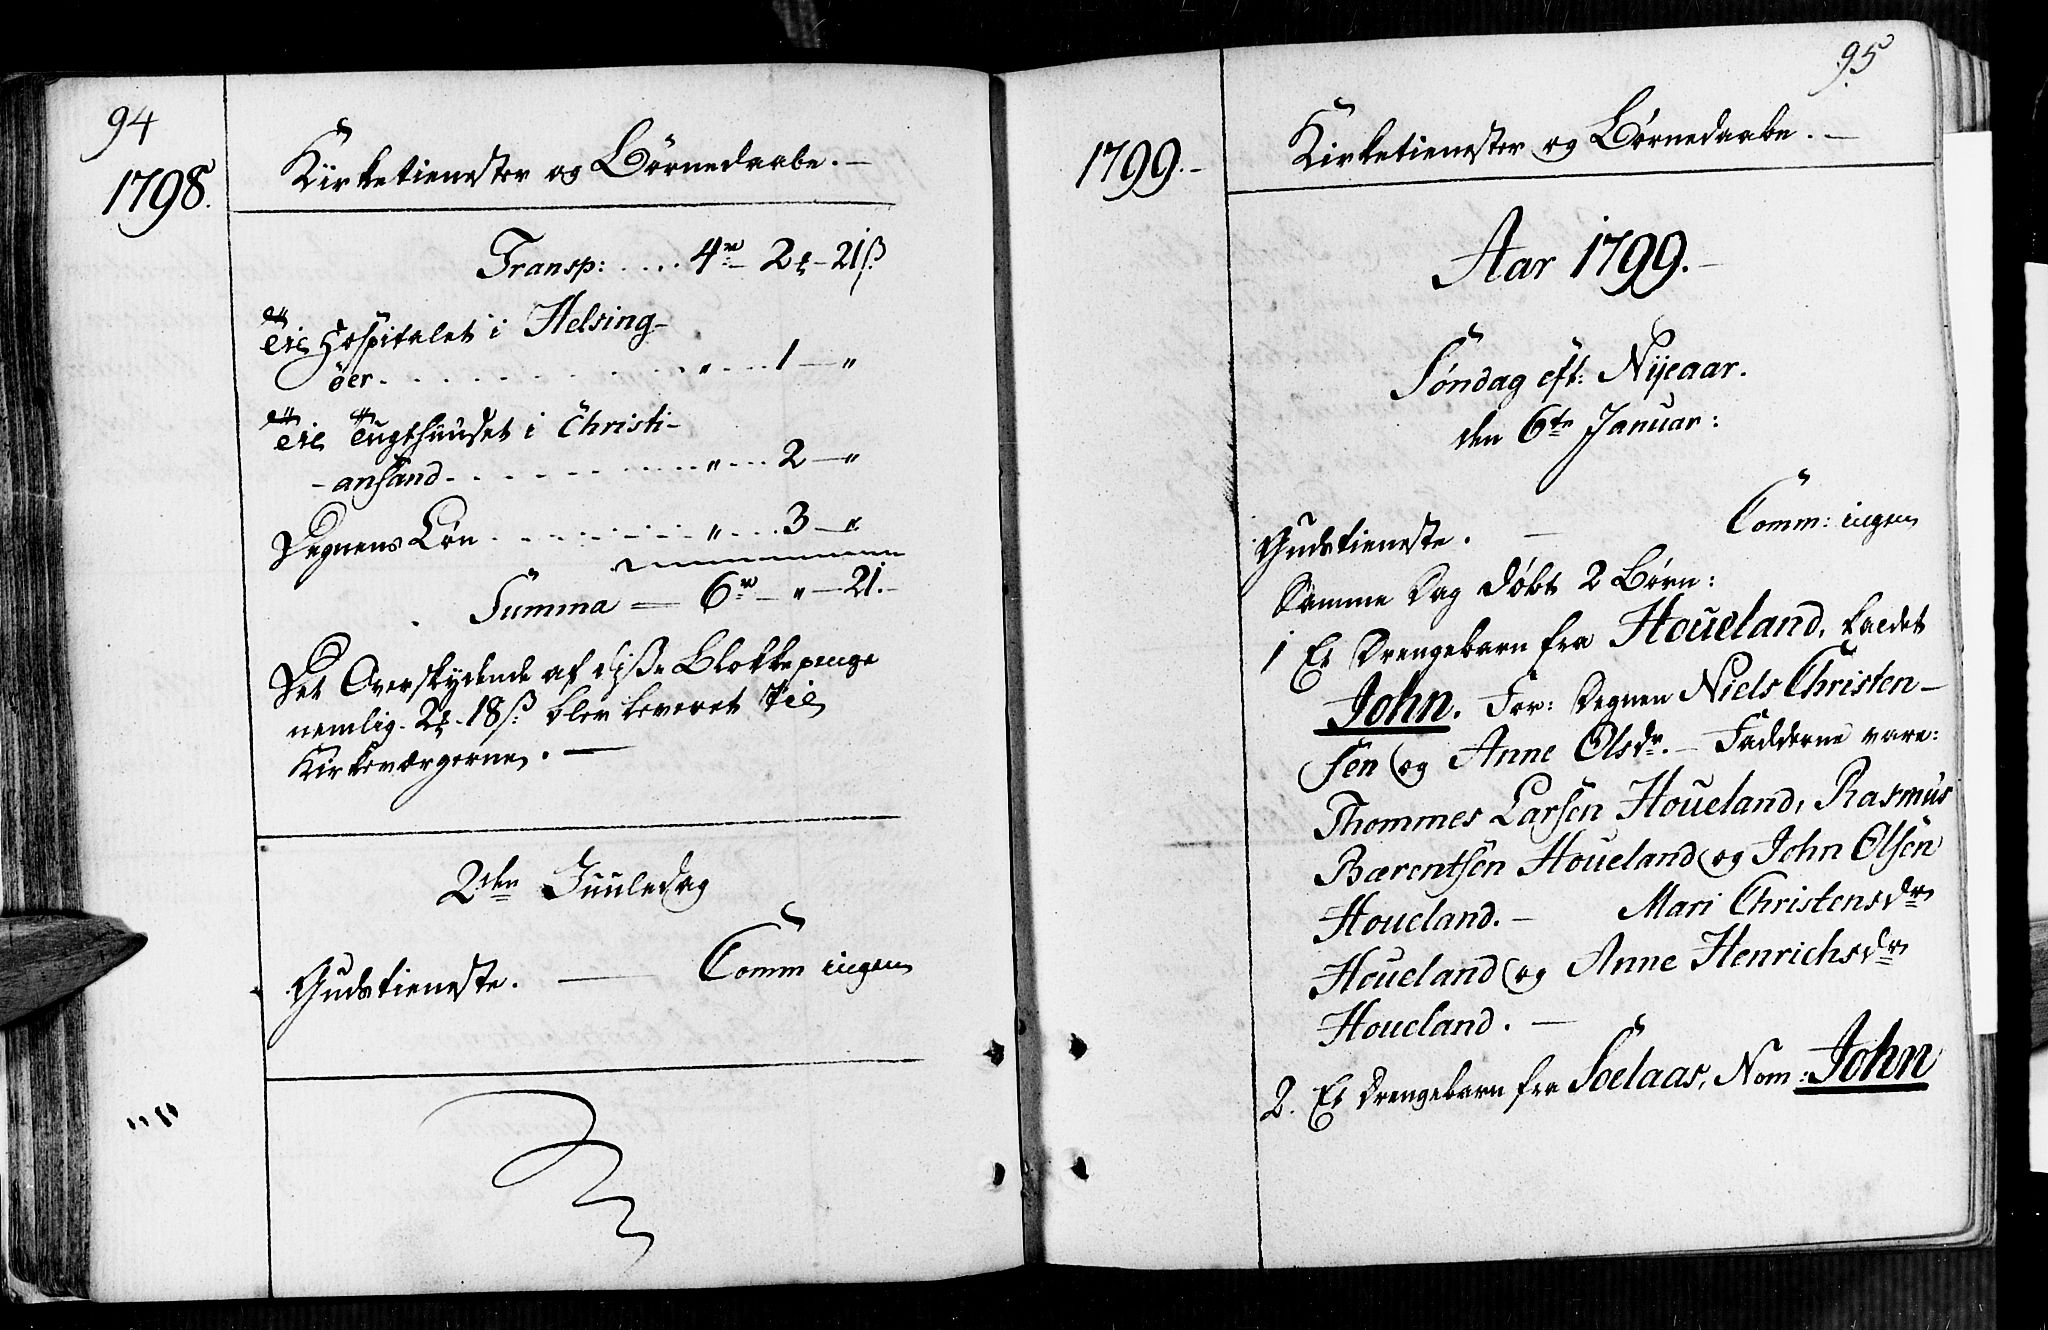 94
1798.
Kirketienester og Børnedaabe. -
Transp: .... 4 - 2 - 21ß
til Hospitalet i Helsing-
öer. . . . . . . . . . . . " ... 1 - "
til Tugthuuset i Christi-
- ansand . . . . . . . . . " ... 2 - "
Degnens Løn . . . . . . . " ... 3 - "
Summa = 6 - " - 21. -
Det Overskydende af diße Blokkepenge
nemlig 2 - 18ß: blev leveret til
Kirkeværgerne. -
2den Juuledag
Gudstieneste. - Comm ingen
95
1799. -
Kirketienester og Børnedaabe. -
Aar 1799. -
Søndag eft: Nyeaar.
den 6te Januar:
Gudstieneste. - Comm: ingen
Samme Dag døbt 2 Børn:
1 Et Drengebarn fra Houeland, kaldet
John. For: Degnen Niels Christen-
sen og Anne Olsdr. - Fadderne vare:
Thommes Larsen Houeland, Rasmus
Bærentsen Houeland og John Olsen
Houeland. - Mari Christensdr
Houeland og Anne Henrichsdr
Houeland. -
2. Et Drengebarn fra Soelaas, Nom: John